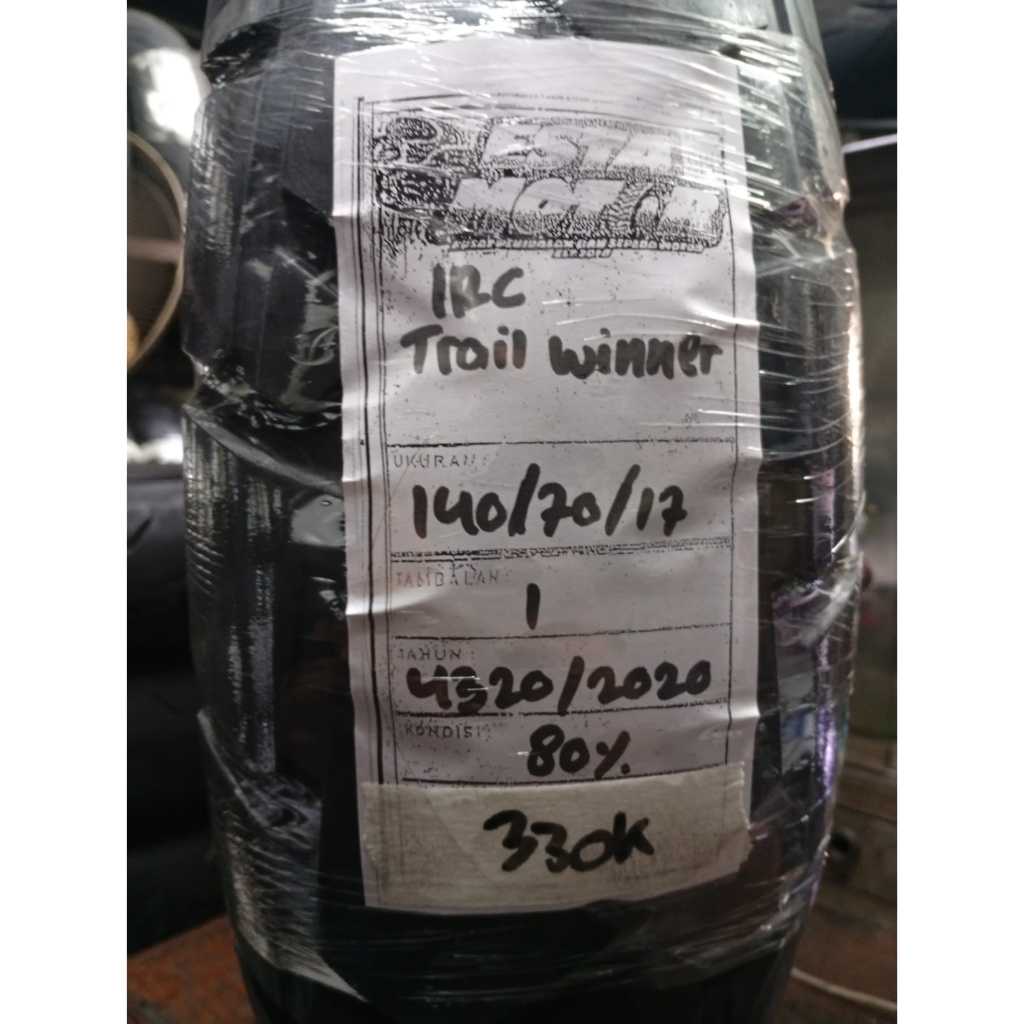 ESTA
MOTOR
IRC
Trail winner
UKURAN :
140/70/17
TAMBALAN :
1
TAHUN :
4320/2020
KONDISI :
80%
330K